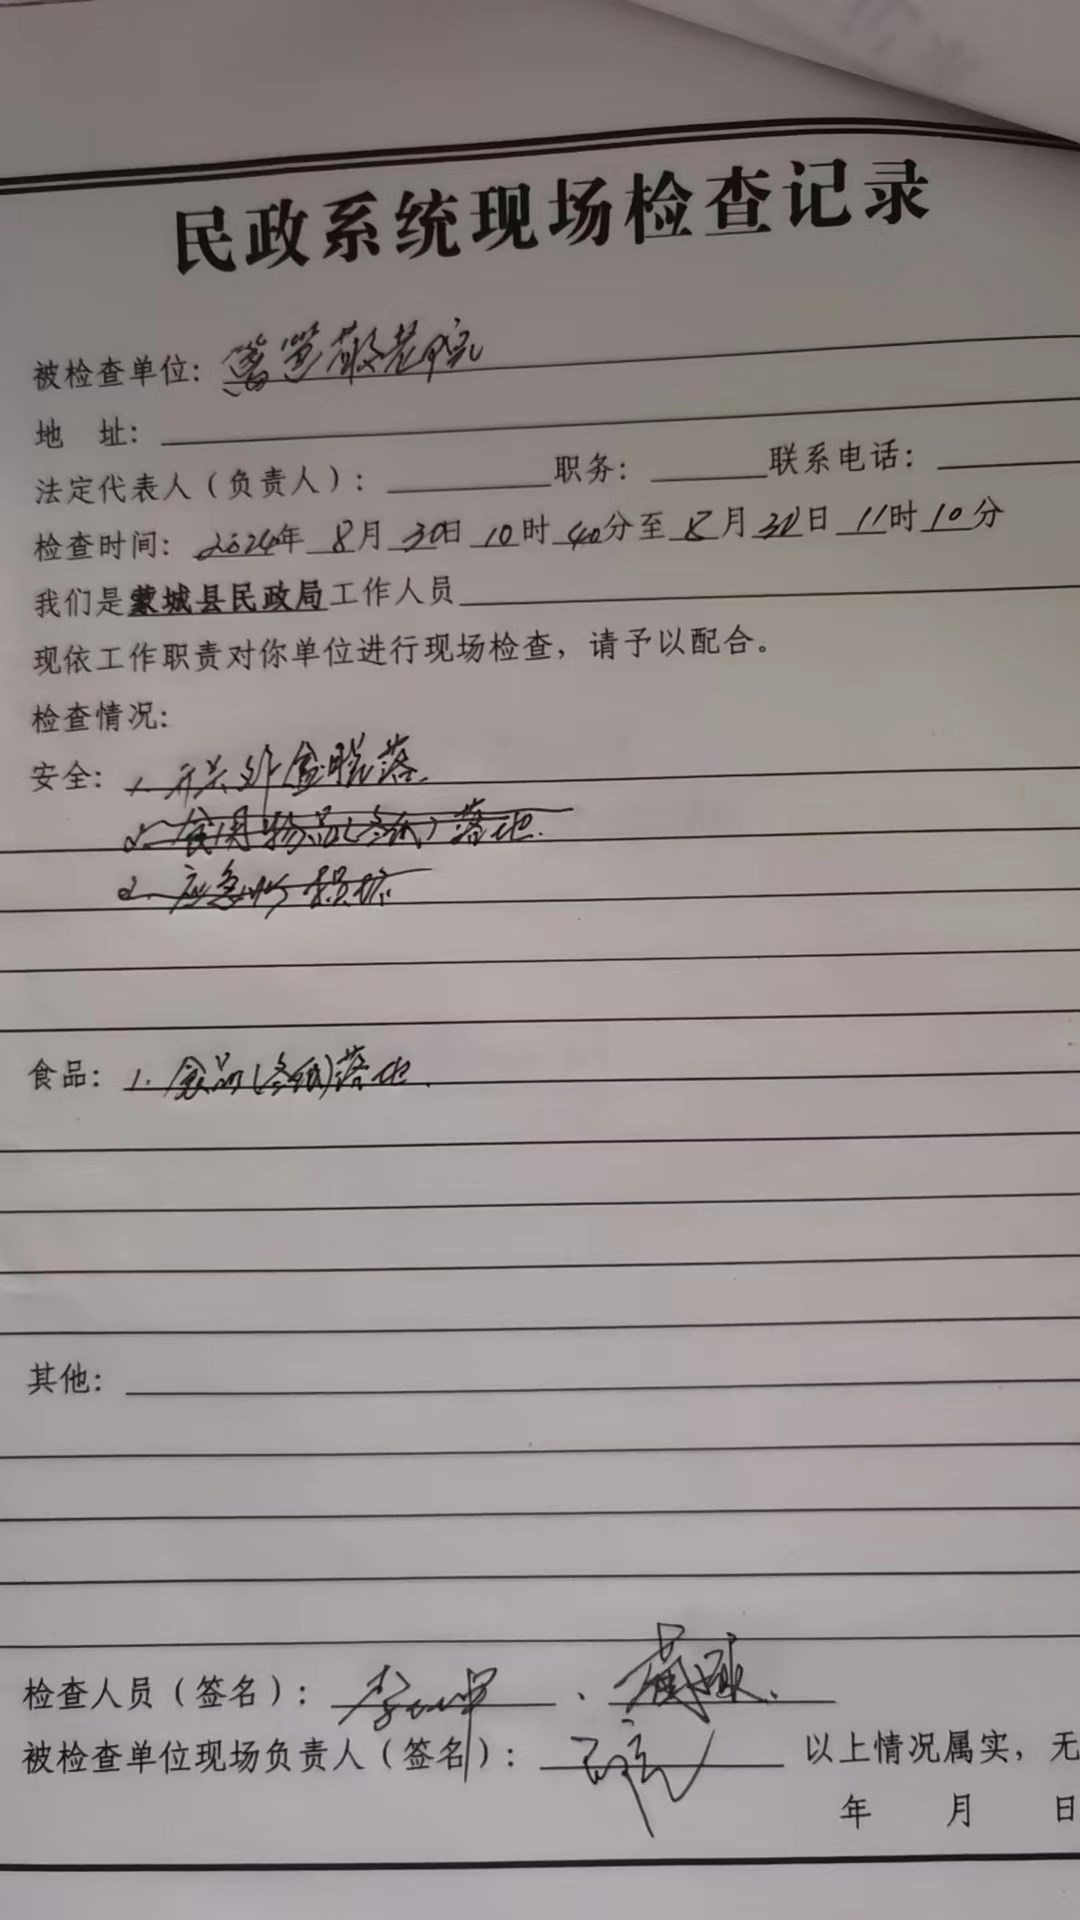 民政系统现场检查记录
被检查单位：篱笆敬老院
地 址：
法定代表人（负责人）：职务：联系电话：
检查时间：2024年 8月 30日 10时 40分至 8月 30日 11时 10分
我们是蒙城县民政局工作人员
现依工作职责对你单位进行现场检查，请予以配合。
检查情况：
安全：1. 开关外盒脱落.
2. 食用物品() 落地.
2. 应急灯损坏
食品：1. 食品()落地.
其他：
检查人员（签名）：李 、
被检查单位现场负责人（签名）： 以上情况属实，无
年 月 日